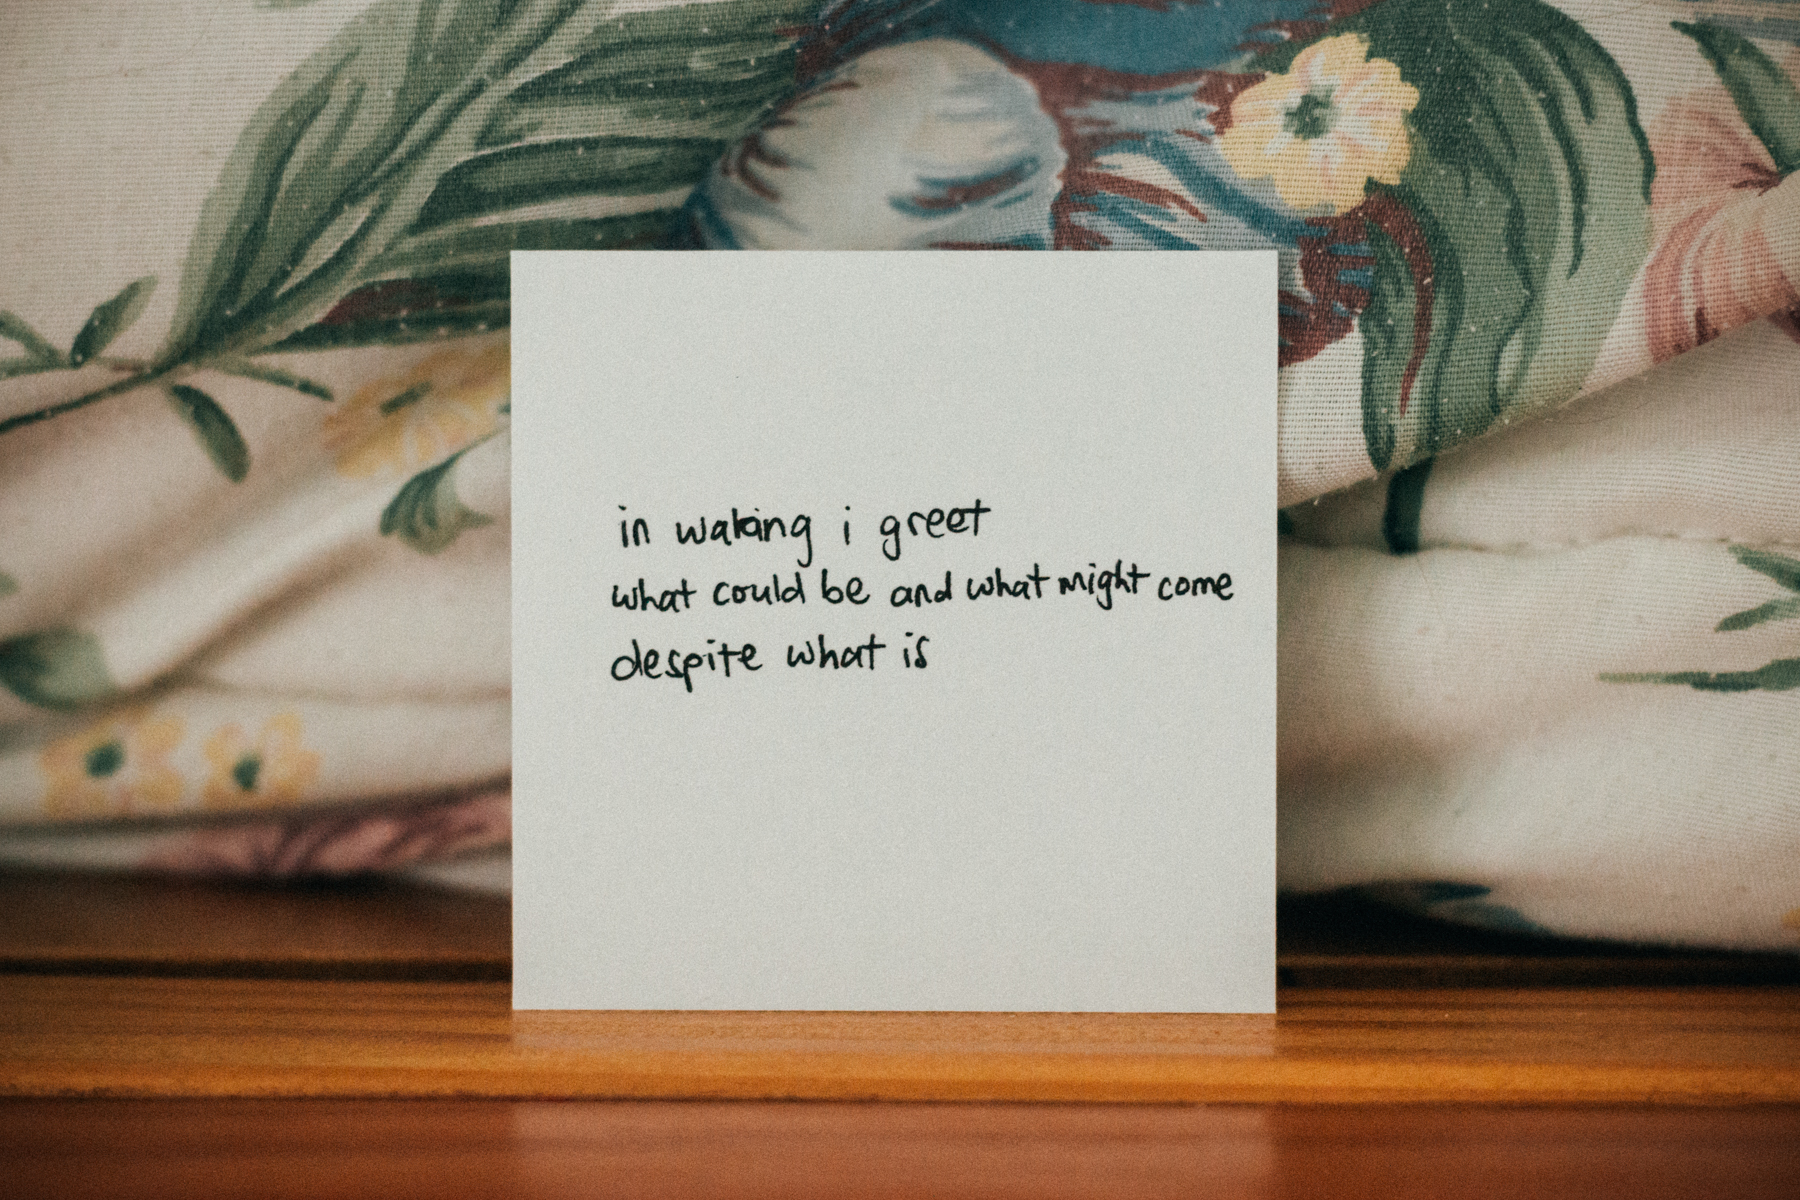 in waking i greet
what could be and what might come
despite what is